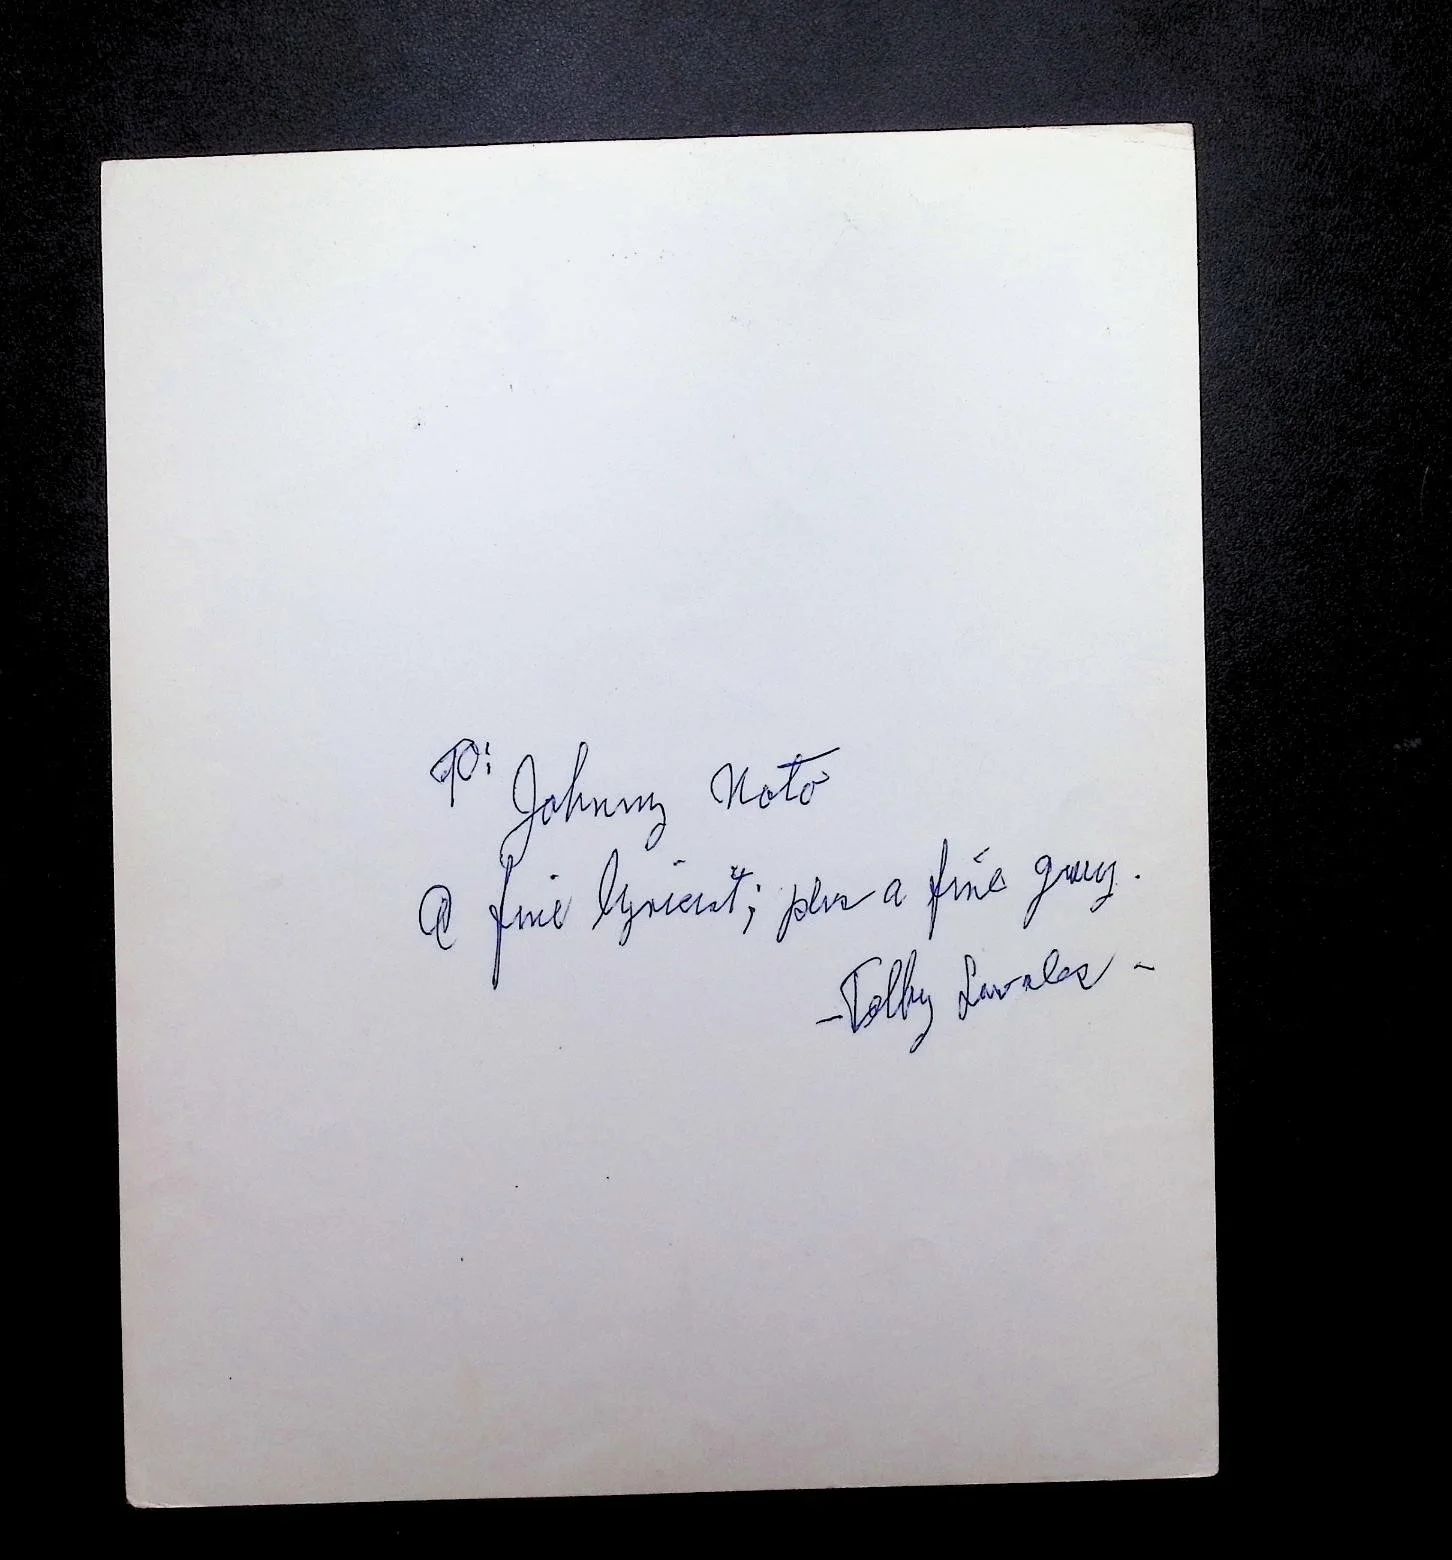 To: Johnny Noto
A fine lyricist; plus a fine guy.
- Tolby